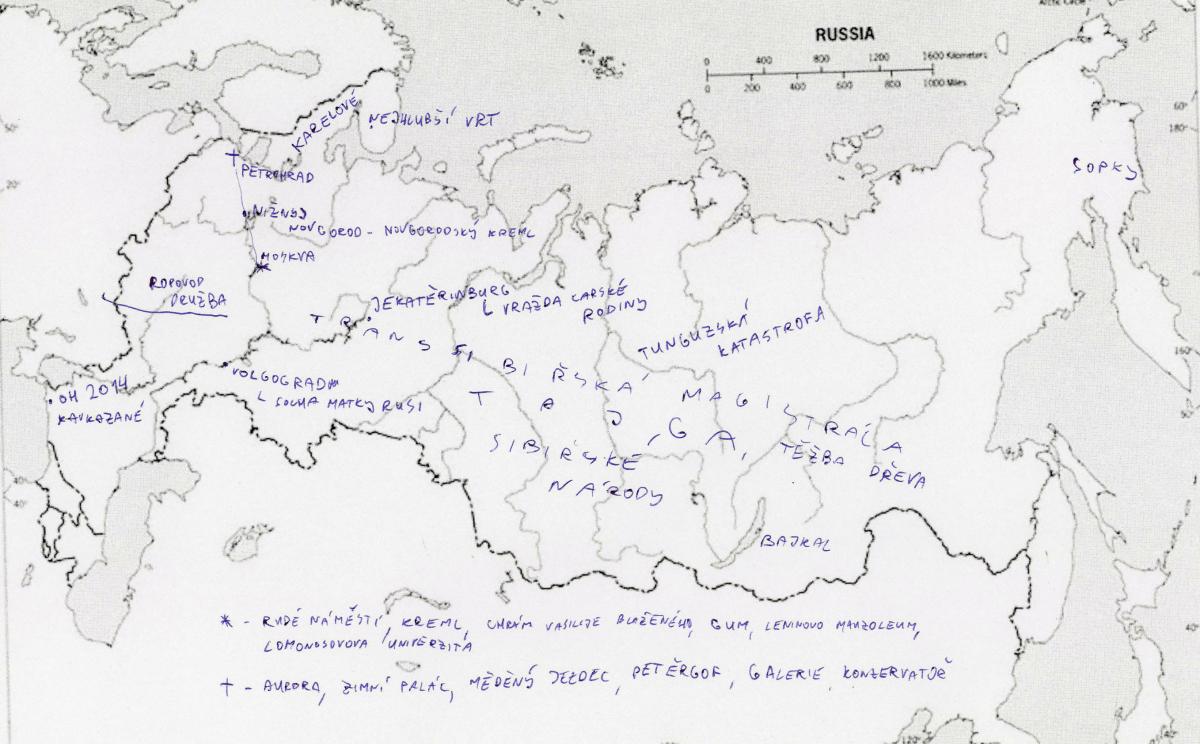 Arctic Circle
RUSSIA
0 400 800 1200 1600 Kilometers
0 200 400 600 800 1000 Miles
60°
180°
50°
20°
NEJHLUBŠÍ VRT
KARELOVÉ
SOPKY
PETROHRAD
NIŽNYJ
NOVGOROD - NOVGORODSKÝ KREML
MOSKVA
ROPOVOD
DRUŽBA
JEKATĚRINBURG
VRAŽDA CARSKÉ
RODINY
TUNGUZSKÁ
KATASTROFA
TRANSSIBIŘSKÁ MAGISTRÁLA
160°
VOLGOGRAD
SOCHA MATKY RUSI
OH 2014
KAVKAZANÉ
TAJGA, TĚŽBA DŘEVA
SIBIŘSKÉ
NÁRODY
50°
40°
BAJKAL
* - RUDÉ NÁMĚSTÍ, KREML, CHRÁM VASILIJE BLAŽENÉHO, GUM, LENINOVO MAUZOLEUM,
LOMONOSOVOVA UNIVERZITA
40°
† - AURORA, ZIMNÍ PALÁC, MĚDĚNÝ JEZDEC, PETĚRGOF, GALERIE, KONZERVATOŘ
120°
140°